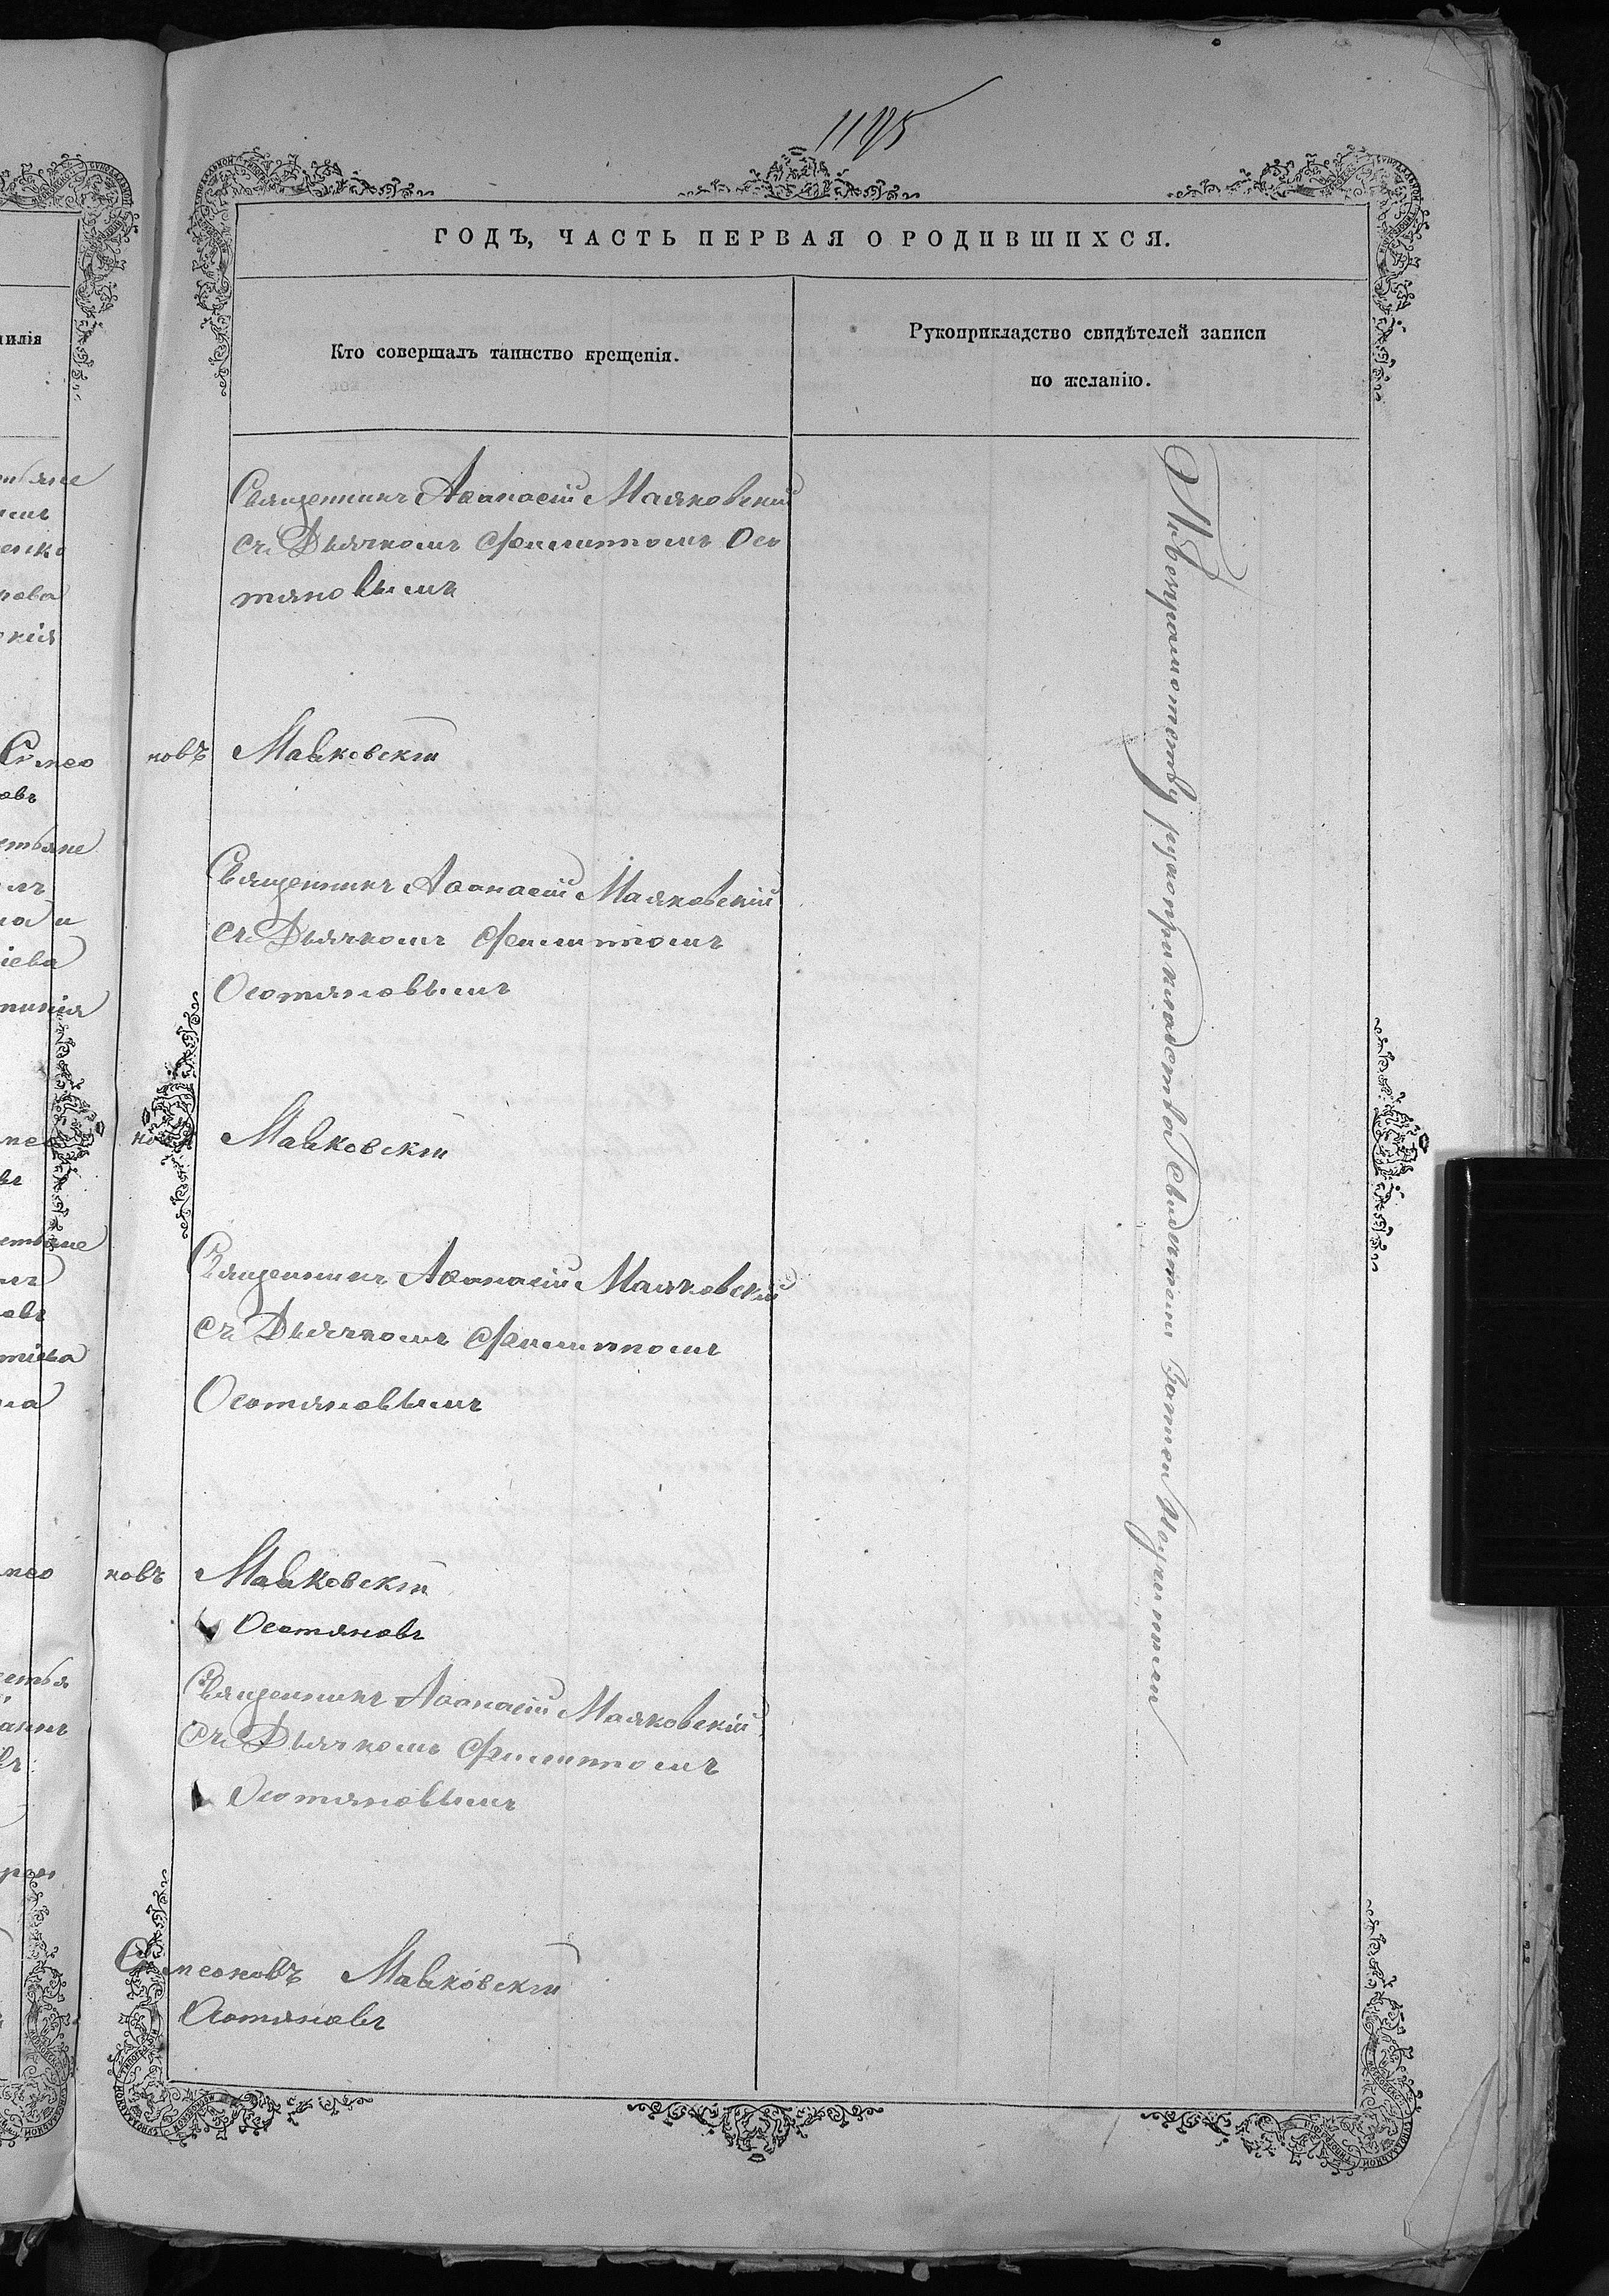 1195
ГОДЪ, ЧАСТЬ ПЕРВАЯ О РОДИВШИХСЯ.
Кто совершалъ таинство крещенія.
Рукоприкладство свидѣтелей записи
по желанію.
Священникъ Аѳанасій Маяковскій
съ Дьячкомъ Филиппомъ Осо
тяновымъ
новъ Маяковскій
Священникъ Аѳанасій Маяковскій
съ Дьячкомъ Филиппомъ
Осотяновымъ
Маяковскій
Священникъ Аѳанасій Маяковскій
съ Дьячкомъ Филиппомъ
Осотяновымъ
новъ Маяковскій
Осотяновъ
Священникъ Аѳанасій Маяковскій
съ Дьячкомъ Филиппомъ
Осотяновымъ
Симеоновъ Маяковскій
Осотяновъ
рукоприкладства